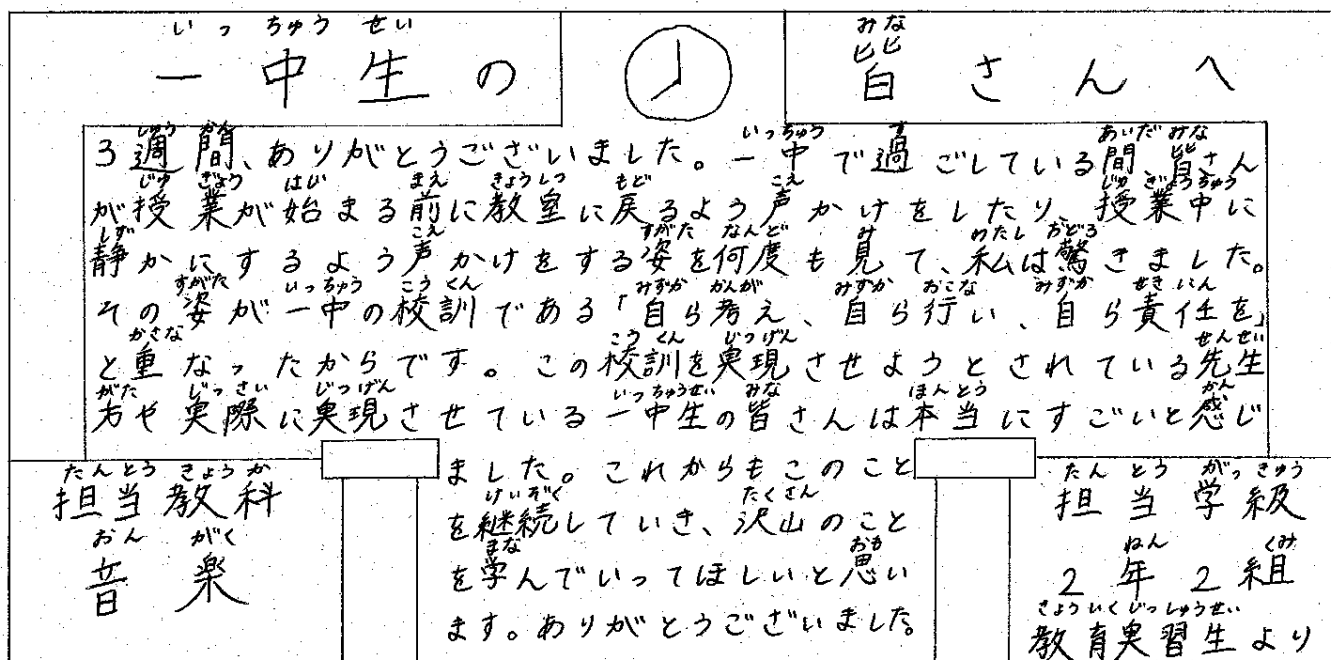 いっちゅうせい
一中生の
みな
皆さんへ
3週間、ありがとうございました。一中で過ごしている間、皆さん
が授業が始まる前に教室に戻るよう声かけをしたり、授業中に
静かにするよう声かけをする姿を何度も見て、私は驚きました。
その姿が一中の校訓である「自ら考え、自ら行い、自ら責任を」
と重なったからです。この校訓を実現させようとされている先生
方や実際に実現させている一中生の皆さんは本当にすごいと感じ
ました。これからもこのこと
を継続していき、沢山のこと
を学んでいってほしいと思い
ます。ありがとうございました。
たんとうきょうか
担当教科
おんがく
音楽
たんとうがっきゅう
担当学級
ねん くみ
2年2組
きょういくじっしゅうせい
教育実習生より